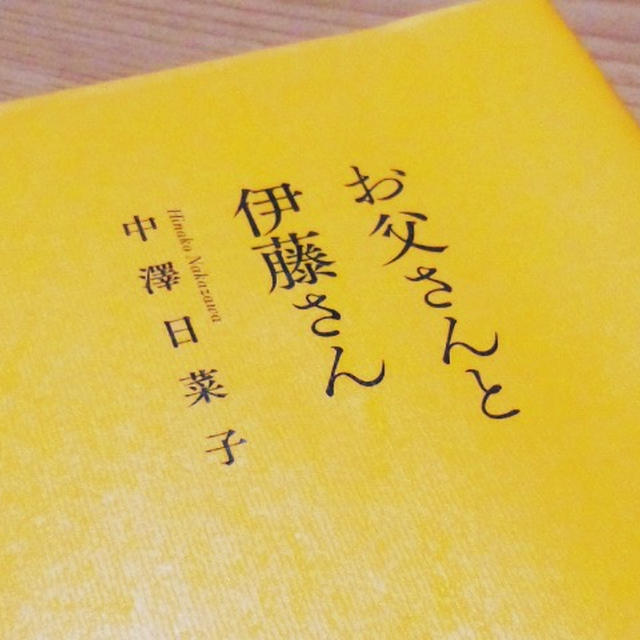 お父さんと
伊藤さん
Hinako Nakazawa
中澤日菜子